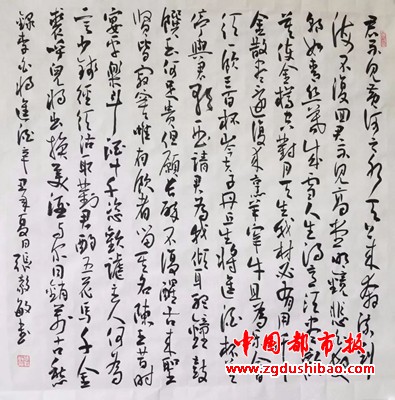 君不见黄河之水天上来奔流到
海不复回君不见高堂明镜悲白发
朝如青丝暮成雪人生得意须尽欢
莫使金樽空对月天生我材必有用千
金散尽还复来烹羊宰牛且为乐会
须一饮三百杯岑夫子丹丘生将进酒杯莫
停与君歌一曲请君为我倾耳听钟鼓
馔玉何足贵但愿长醉不复醒古来圣
贤皆寂寞惟有饮者留其名陈王昔时
宴平乐斗酒十千恣欢谑主人何为
言少钱径须沽取对君酌五花马千金
裘呼儿将出换美酒与尔同销万古愁
录李白将进酒辛丑年夏日张敏书
中国都市报
www.zgdushibao.com